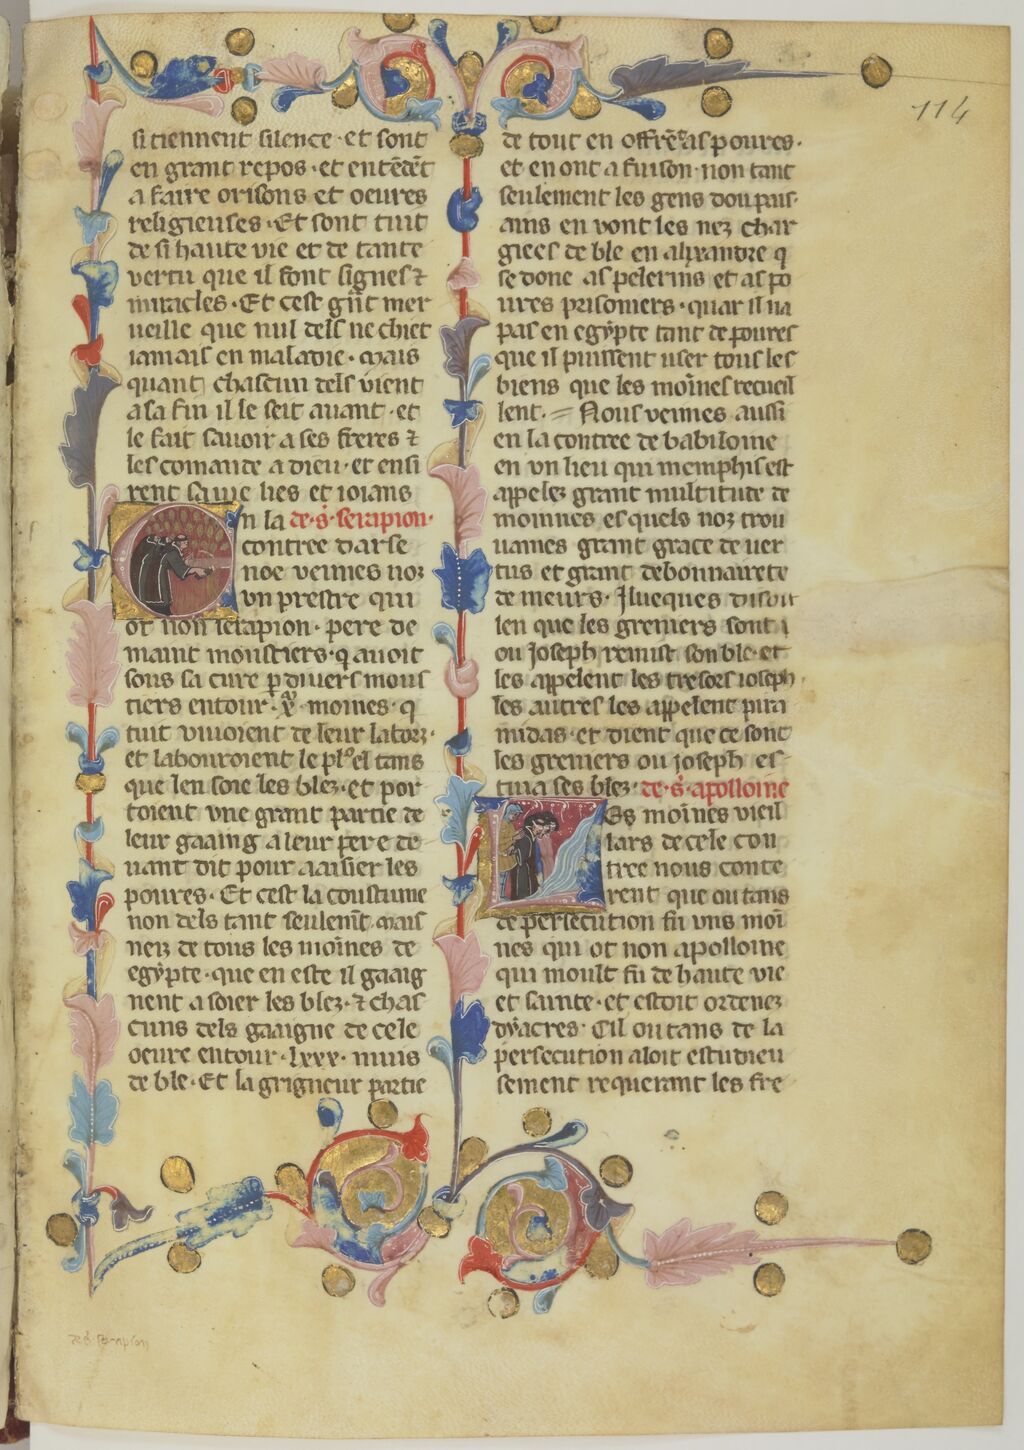 114
si tiennent silence · et sont
en grant repos · et entēdēt
a faire orisons et oeures
religieuses · Et sont tuit
de si haute vie et de tante
vertu que il font signes ⁊
miracles · Et cest gñt mer
ueille que nul dels ne chiet
iamais en maladie · mais
quant chascun dels vient
a sa fin il le seit auant · et
le fait sauoir a ses freres ⁊
les comande a dieu · et ensi
rent lies et ioians
n la de · s̄ · serapion ·
contree darse
noe venimes noz
vn prestre qui
ot non serapion · pere de
maint moustiers · q auoit
souz sa cure ꝑ diuers mous
tiers entour · x̄ · moines · q
tuit viuoient de leur labors ·
et labouroient le plꝰ el tans
que len soie les blez · et por
toient vne grant partie de
leur gaaing a leur pere de
uant dit pour aaisier les
poures · Et cest la coustume
non dels tant seulemēt mais
neiz de tous les moines de
egypte · que en este il gaaig
nent a soier les blez · ⁊ chas
cuns dels gaaigne de cele
oeure entour · lxxx · muis
de ble · Et la grigneur partie
de tout en offrēt as poures ·
et en ont a fuison · non tant
seulement les gens dou pais ·
ains en vont les nez char
giees de ble en alixandre q
se done as pelerins et as po
ures prisoniers · quar il na
pas en egypte tant de poures
que il puissent user tous les
biens que les moines recueil
lent · Nous venimes aussi
en la contree de babiloine
en vn lieu qui memphis est
appelez grant multitute de
moinnes es quels noz trou
uames grant grace de uer
tus et grant debonnairete
de meurs · Ilueques disoit
len que les greniers sont i
ou ioseph remist son ble · et
les appelent les tresors ioseph ·
les autres les appelent pira
midas · et dient que ce sont
les greniers ou ioseph es
tuia ses blez · de · s̄ · apolloine
Es moines vieil
lars de cele con
tree nous conte
rent que ou tans
de persecution fu vns moi
nes qui ot non apolloine
qui moult fu de haute vie
et sainte · et estoit ordenez
dyacres · Cil ou tans de la
persecution aloit estudieu
sement requerant les fre